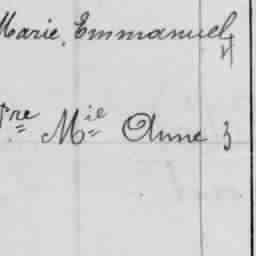 Marie, Emmanuel
re Mie Anne 3